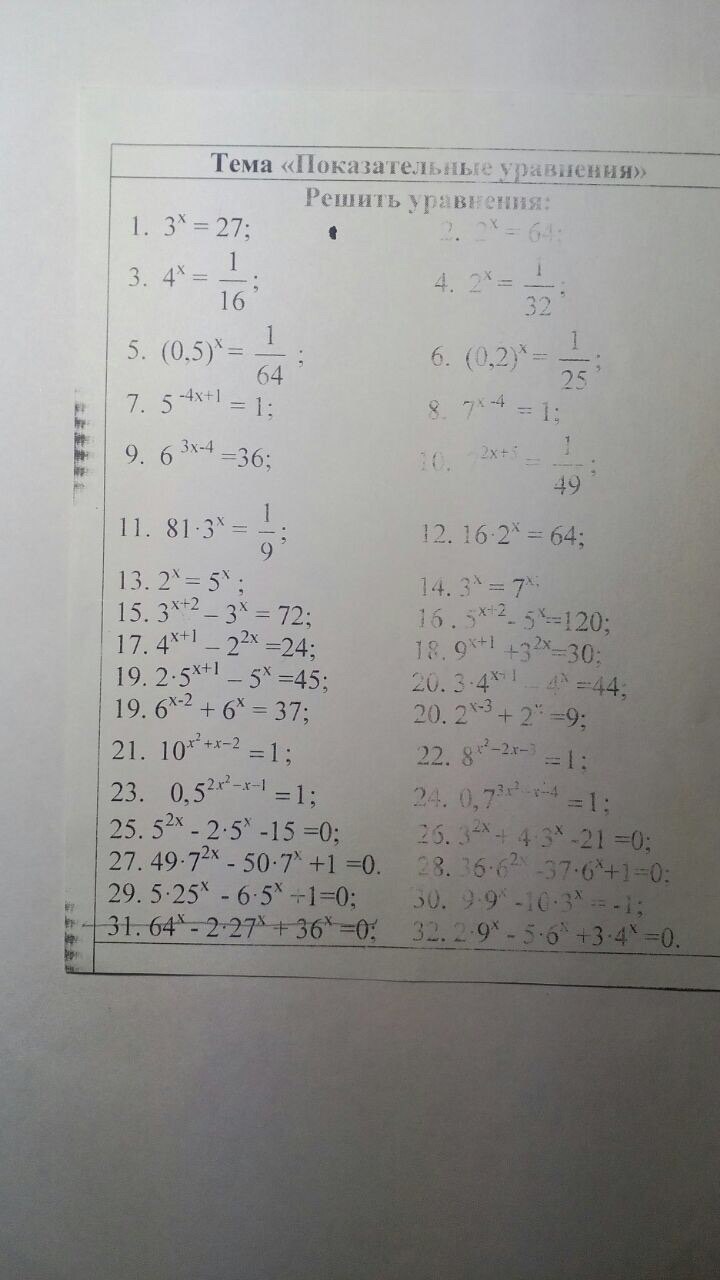 Тема «Показательные уравнения»
Решить уравнения:
1. 3ˣ = 27; 2. 2ˣ = 64;
3. 4ˣ = 1/16; 4. 2ˣ = 1/32;
5. (0,5)ˣ = 1/64 ; 6. (0,2)ˣ = 1/25;
7. 5^(-4x+1) = 1; 8. 7^(x-4) = 1;
9. 6^(3x-4) =36; 10. ^(2x+5) = 1/49;
11. 81·3ˣ = 1/9; 12. 16·2ˣ = 64;
13. 2ˣ = 5ˣ ; 14. 3ˣ = 7ˣ;
15. 3^(x+2) – 3ˣ = 72; 16 . 5^(x+2) - 5ˣ=120;
17. 4^(x+1) – 2^(2x) =24; 18. 9^(x+1) +3^(2x)=30;
19. 2·5^(x+1) – 5ˣ =45; 20. 3·4^(x+1) – 4ˣ =44;
19. 6^(x-2) + 6ˣ = 37; 20. 2^(x-3) + 2ˣ =9;
21. 10^(x²+x−2) =1; 22. 8^(x²−2x−3) =1;
23. 0,5^(2x²−x−1) =1; 24. 0,7^(3x²−x−4) =1;
25. 5^(2x) - 2·5ˣ -15 =0; 26. 3^(2x) + 4·3ˣ -21 =0;
27. 49·7^(2x) - 50·7ˣ +1 =0. 28. 36·6^(2x) -37·6ˣ+1=0:
29. 5·25ˣ - 6·5ˣ +1=0; 30. 9·9ˣ -10·3ˣ = -1;
31. 64ˣ - 2·27ˣ + 36ˣ =0; 32. 2·9ˣ - 5·6ˣ +3·4ˣ =0.